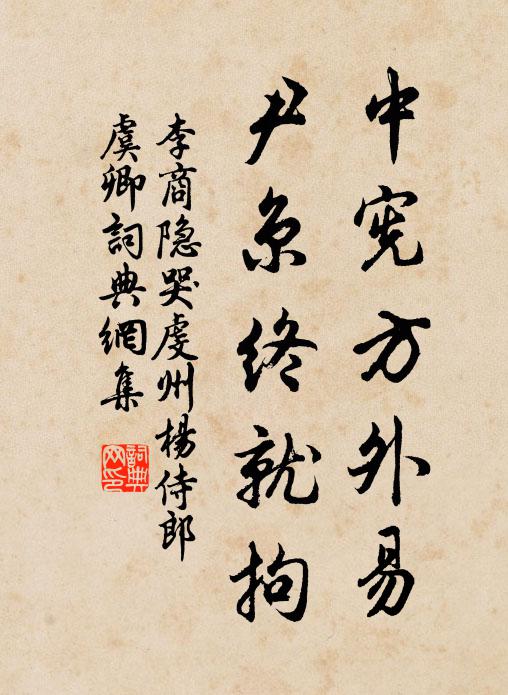 中宪方外易
尹京終就拘
李商隐哭虔州楊侍郎
虞卿詞典網集
詞典网印